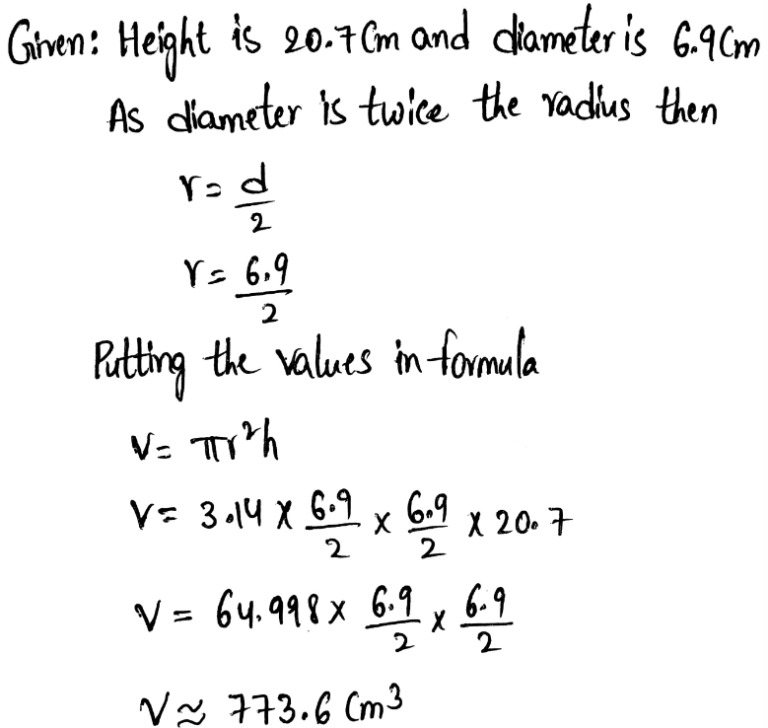 Given: Height is 20.7 Cm and diameter is 6.9 Cm
As diameter is twice the radius then
r = d/2
r = 6.9/2
Putting the values in formula
V = πr²h
V = 3.14 × 6.9/2 × 6.9/2 × 20.7
V = 64.998 × 6.9/2 × 6.9/2
V ≈ 773.6 Cm³